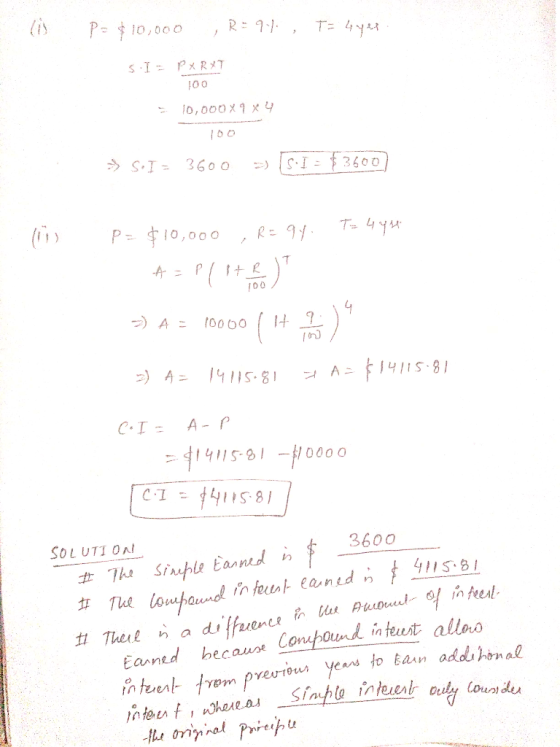 (i) P= $10,000 , R= 9%. , T= 4yrs.
S.I = PxRxT
100
= 10,000x9x4
100
=> S.I = 3600 => S.I = $3600
(ii) P= $10,000 , R= 9%. T= 4yrs
A = P(1+ R/100)^T
=> A = 10000 (1+ 9/100)^4
=> A = 14115.81 => A= $14115.81
C.I = A-P
= $14115.81 -$10000
C.I = $4115.81
SOLUTION
# The Simple Earned is $ 3600
# The Compound interest earned is $ 4115.81
# There is a difference in the Amount of interest.
Earned because Compound interest allow
interest from previous years to Earn additional
interest, whereas Simple interest only consider
the original principle